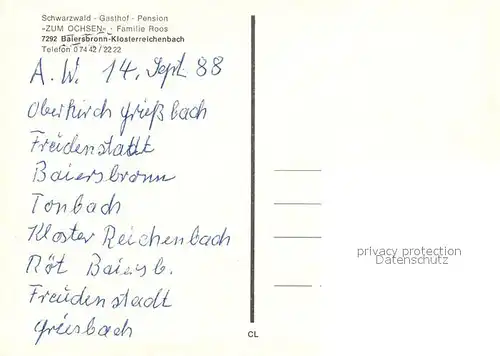 Schwarzwald - Gasthof - Pension
»ZUM OCHSEN« - Familie Roos
7292 Baiersbronn-Klosterreichenbach
Telefon 0 74 42 / 22 22
A. W. 14. Sept. 88
Oberkirch Grießbach
Freüdenstadt
Baiersbronn
Tonbach
Kloster Reichenbach
Röt Baiersb.
Freüdenstadt
Griesbach
privacy protection
Datenschutz
CL